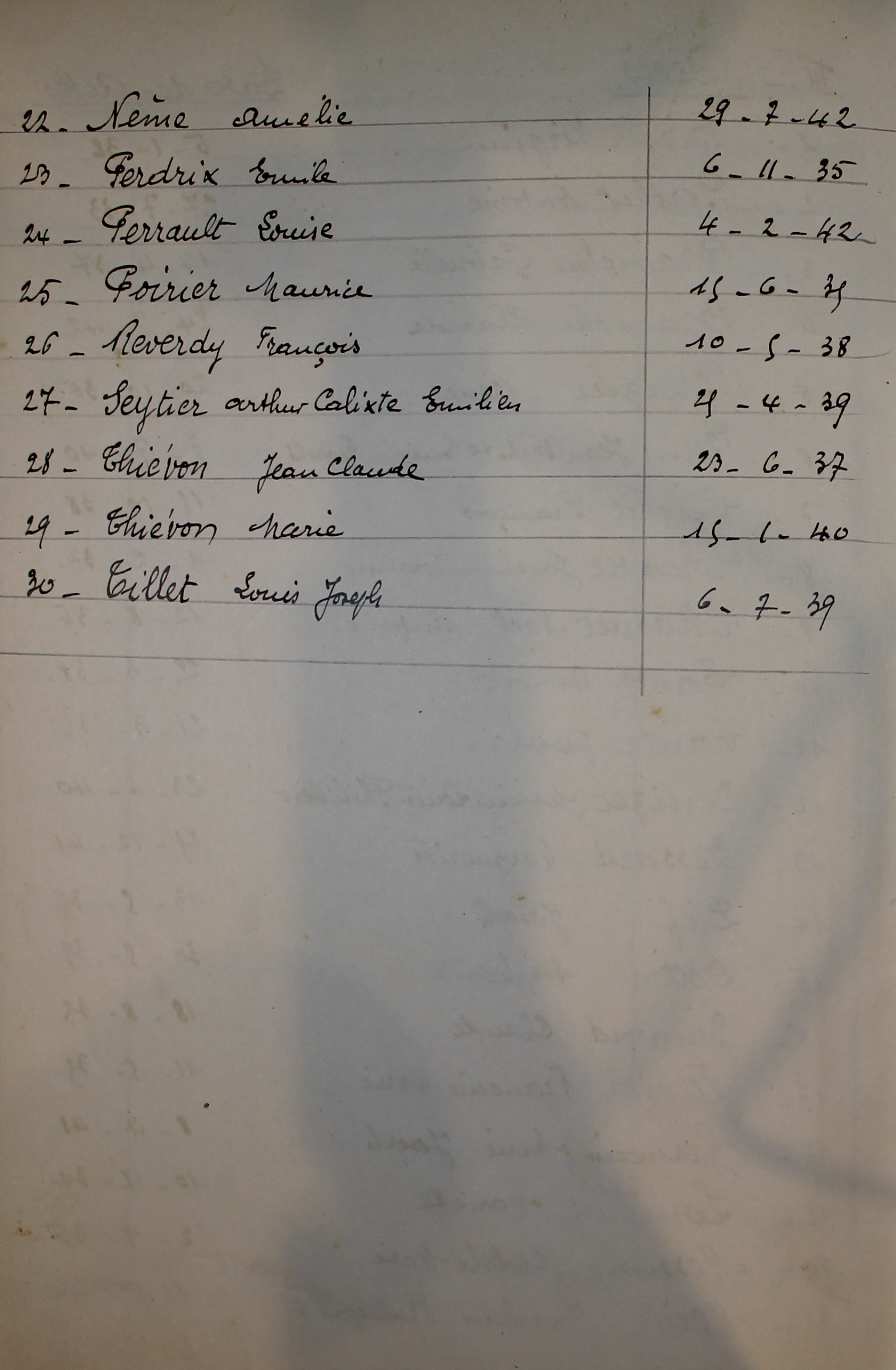 22 - Nême Amélie 29 - 7 - 42
23 - Perdrix Emile 6 - 11 - 35
24 - Perrault Louise 4 - 2 - 42
25 - Poirier Maurice 15 - 6 - 35
26 - Reverdy François 10 - 5 - 38
27 - Seytier Arthur Calixte Emilien 25 - 4 - 39
28 - Thiévon Jean Claude 23 - 6 - 37
29 - Thiévon Marie 15 - 1 - 40
30 - Tillet Louis Joseph 6 - 7 - 39